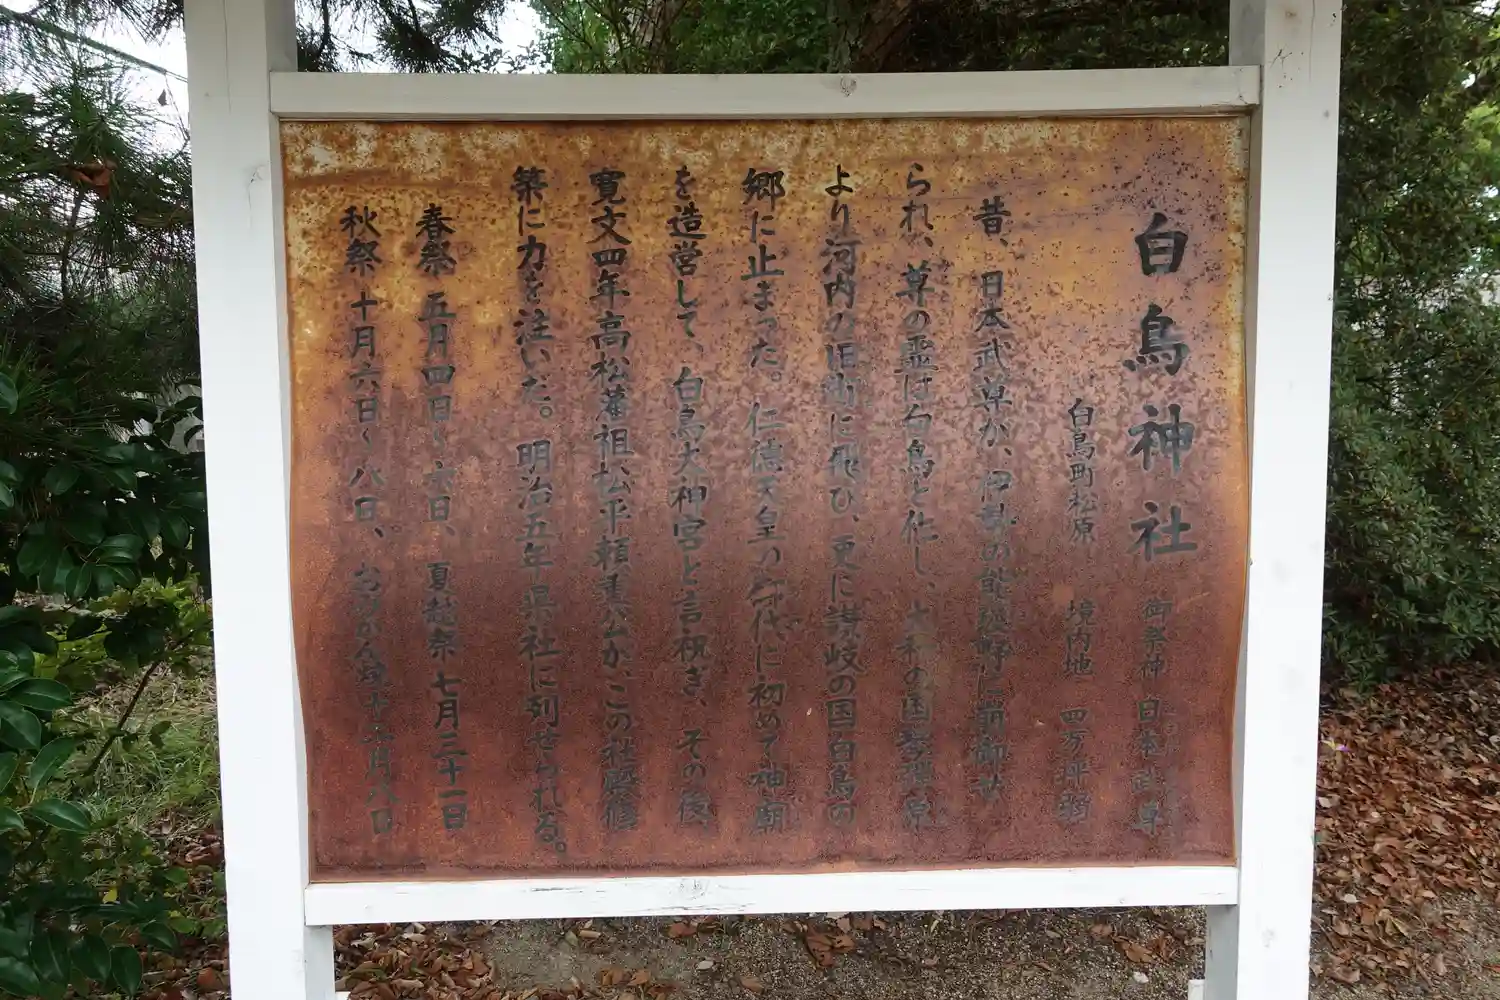 白鳥神社 御祭神 日本武尊
白鳥町松原 境内地 四万坪
昔、日本武尊が、伊勢の能褒野に崩御せ
られ、尊の霊は白鳥と化し、大和の国琴弾原
より河内の旧市に飛び、更に讃岐の国白鳥の
郷に止まった。仁徳天皇の御代に初めて神廟
を造営して、白鳥大神宮と言祝ぎ、その後、
寛文四年高松藩祖松平頼重公が、この社殿修
築に力を注いだ。明治五年県社に列せられる。
春祭 五月四日〜六日、夏越祭 七月三十一日
秋祭 十月六日〜八日、おひがん焼 十二月八日